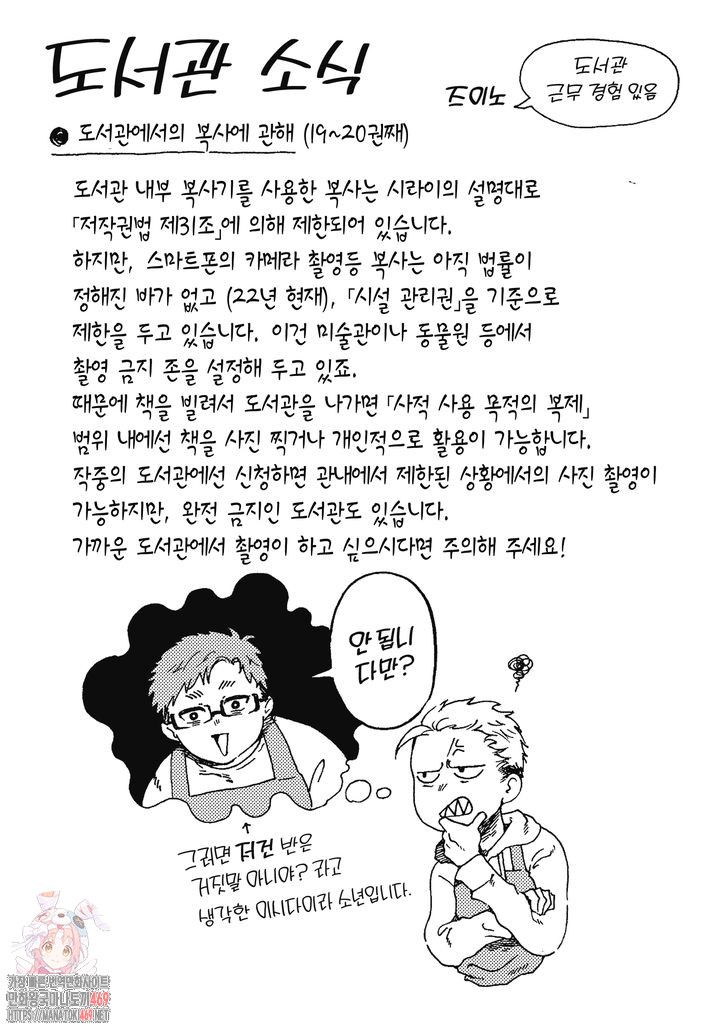 도서관 소식
즈이노
도서관
근무 경험 있음
도서관에서의 복사에 관해 (19~20권째)
도서관 내부 복사기를 사용한 복사는 시라이의 설명대로
「저작권법 제31조」에 의해 제한되어 있습니다.
하지만, 스마트폰의 카메라 촬영등 복사는 아직 법률이
정해진 바가 없고 (22년 현재), 「시설 관리권」을 기준으로
제한을 두고 있습니다. 이건 미술관이나 동물원 등에서
촬영 금지 존을 설정해 두고 있죠.
때문에 책을 빌려서 도서관을 나가면 「사적 사용 목적의 복제」
범위 내에선 책을 사진 찍거나 개인적으로 활용이 가능합니다.
작중의 도서관에선 신청하면 관내에서 제한된 상황에서의 사진 촬영이
가능하지만, 완전 금지인 도서관도 있습니다.
가까운 도서관에서 촬영이 하고 싶으시다면 주의해 주세요!
안 됩니
다만?
그러면 저건 반은
거짓말 아니야? 라고
생각한 이시다이라 소년입니다.
가장 빠른 번역만화사이트
만화왕국마나토끼469
HTTPS://MANATOKI469.NET